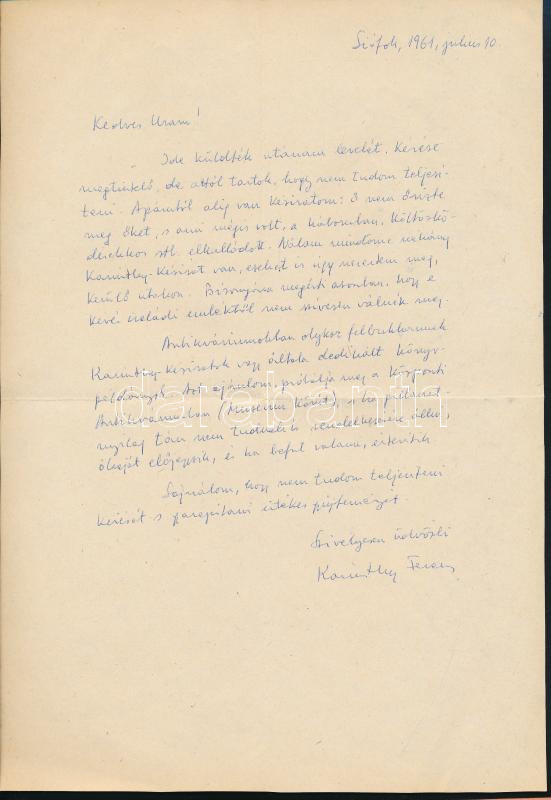 Siófok, 1961, julius 10.
Kedves Uram!
Ide küldték utánam levelét. Kérése
megtisztelő, de attól tartok, hogy nem tudom teljesi-
teni. Apámtól alig van kéziratom: ő nem őrizte
meg őket, s ami mégis volt, a háborúban, költözkö-
désekkor stb. elkallódott. Nálam mindössze néhány
Karinthy-kézirat van, ezeket is úgy szereztem meg,
kerülő utakon. Bizonyára megérti azonban, hogy e
kevés családi emléktől nem szívesen válnék meg.
Antikváriumokban olykor felbukkannak
Karinthy-kéziratok vagy általa dedikált könyv-
példányok. Azt ajánlom, próbálja meg a Központi
Antikváriumban (Múzeum körút), s ha pillanat-
nyilag tán nem tudnak is rendelkezésére állni,
óhaját előjegyzik, és ha befut valami, értesítik.
Sajnálom, hogy nem tudom teljesíteni
kérését s gyarapítani értékes gyűjteményét.
Szívélyesen üdvözli
Karinthy Ferenc
darabanth